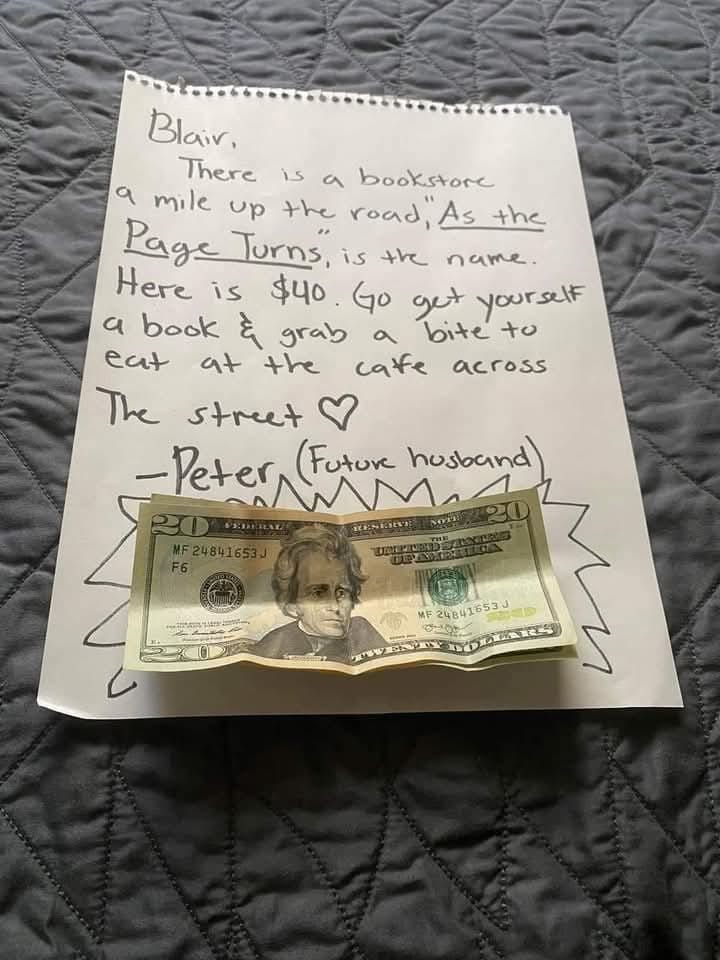 Blair,
There is a bookstore
a mile up the road, "As the
Page Turns", is the name.
Here is $40. Go get yourself
a book & grab a bite to
eat at the cafe across
The street ♡
—Peter (Future husband)
20 FEDERAL RESERVE NOTE 20
THE
UNITED STATES
OF AMERICA
MF 24841653 J
F6
MF 24841653 J
20 TWENTY DOLLARS